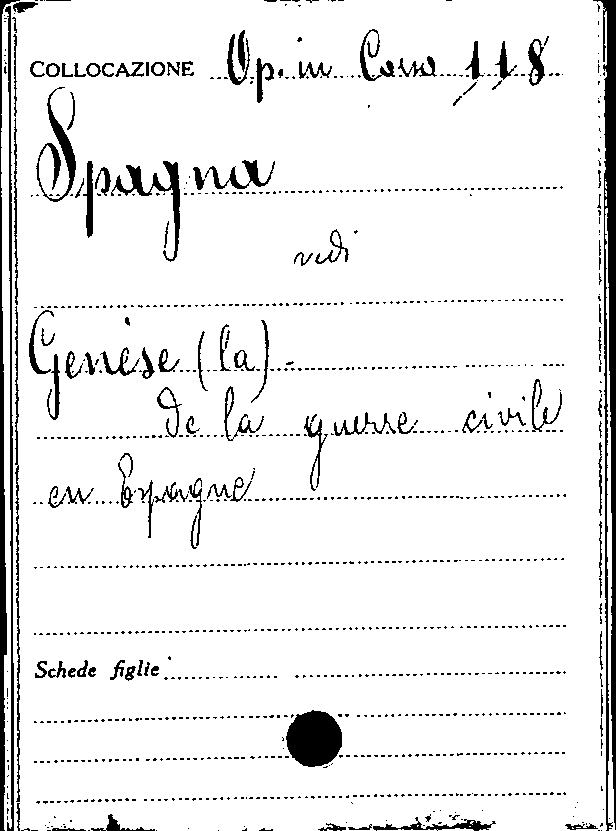 COLLOCAZIONE Op. in Corso 118
Spagna
vedi
Genèse (la) -
De la guerre civile
en Espagne
Schede figlie